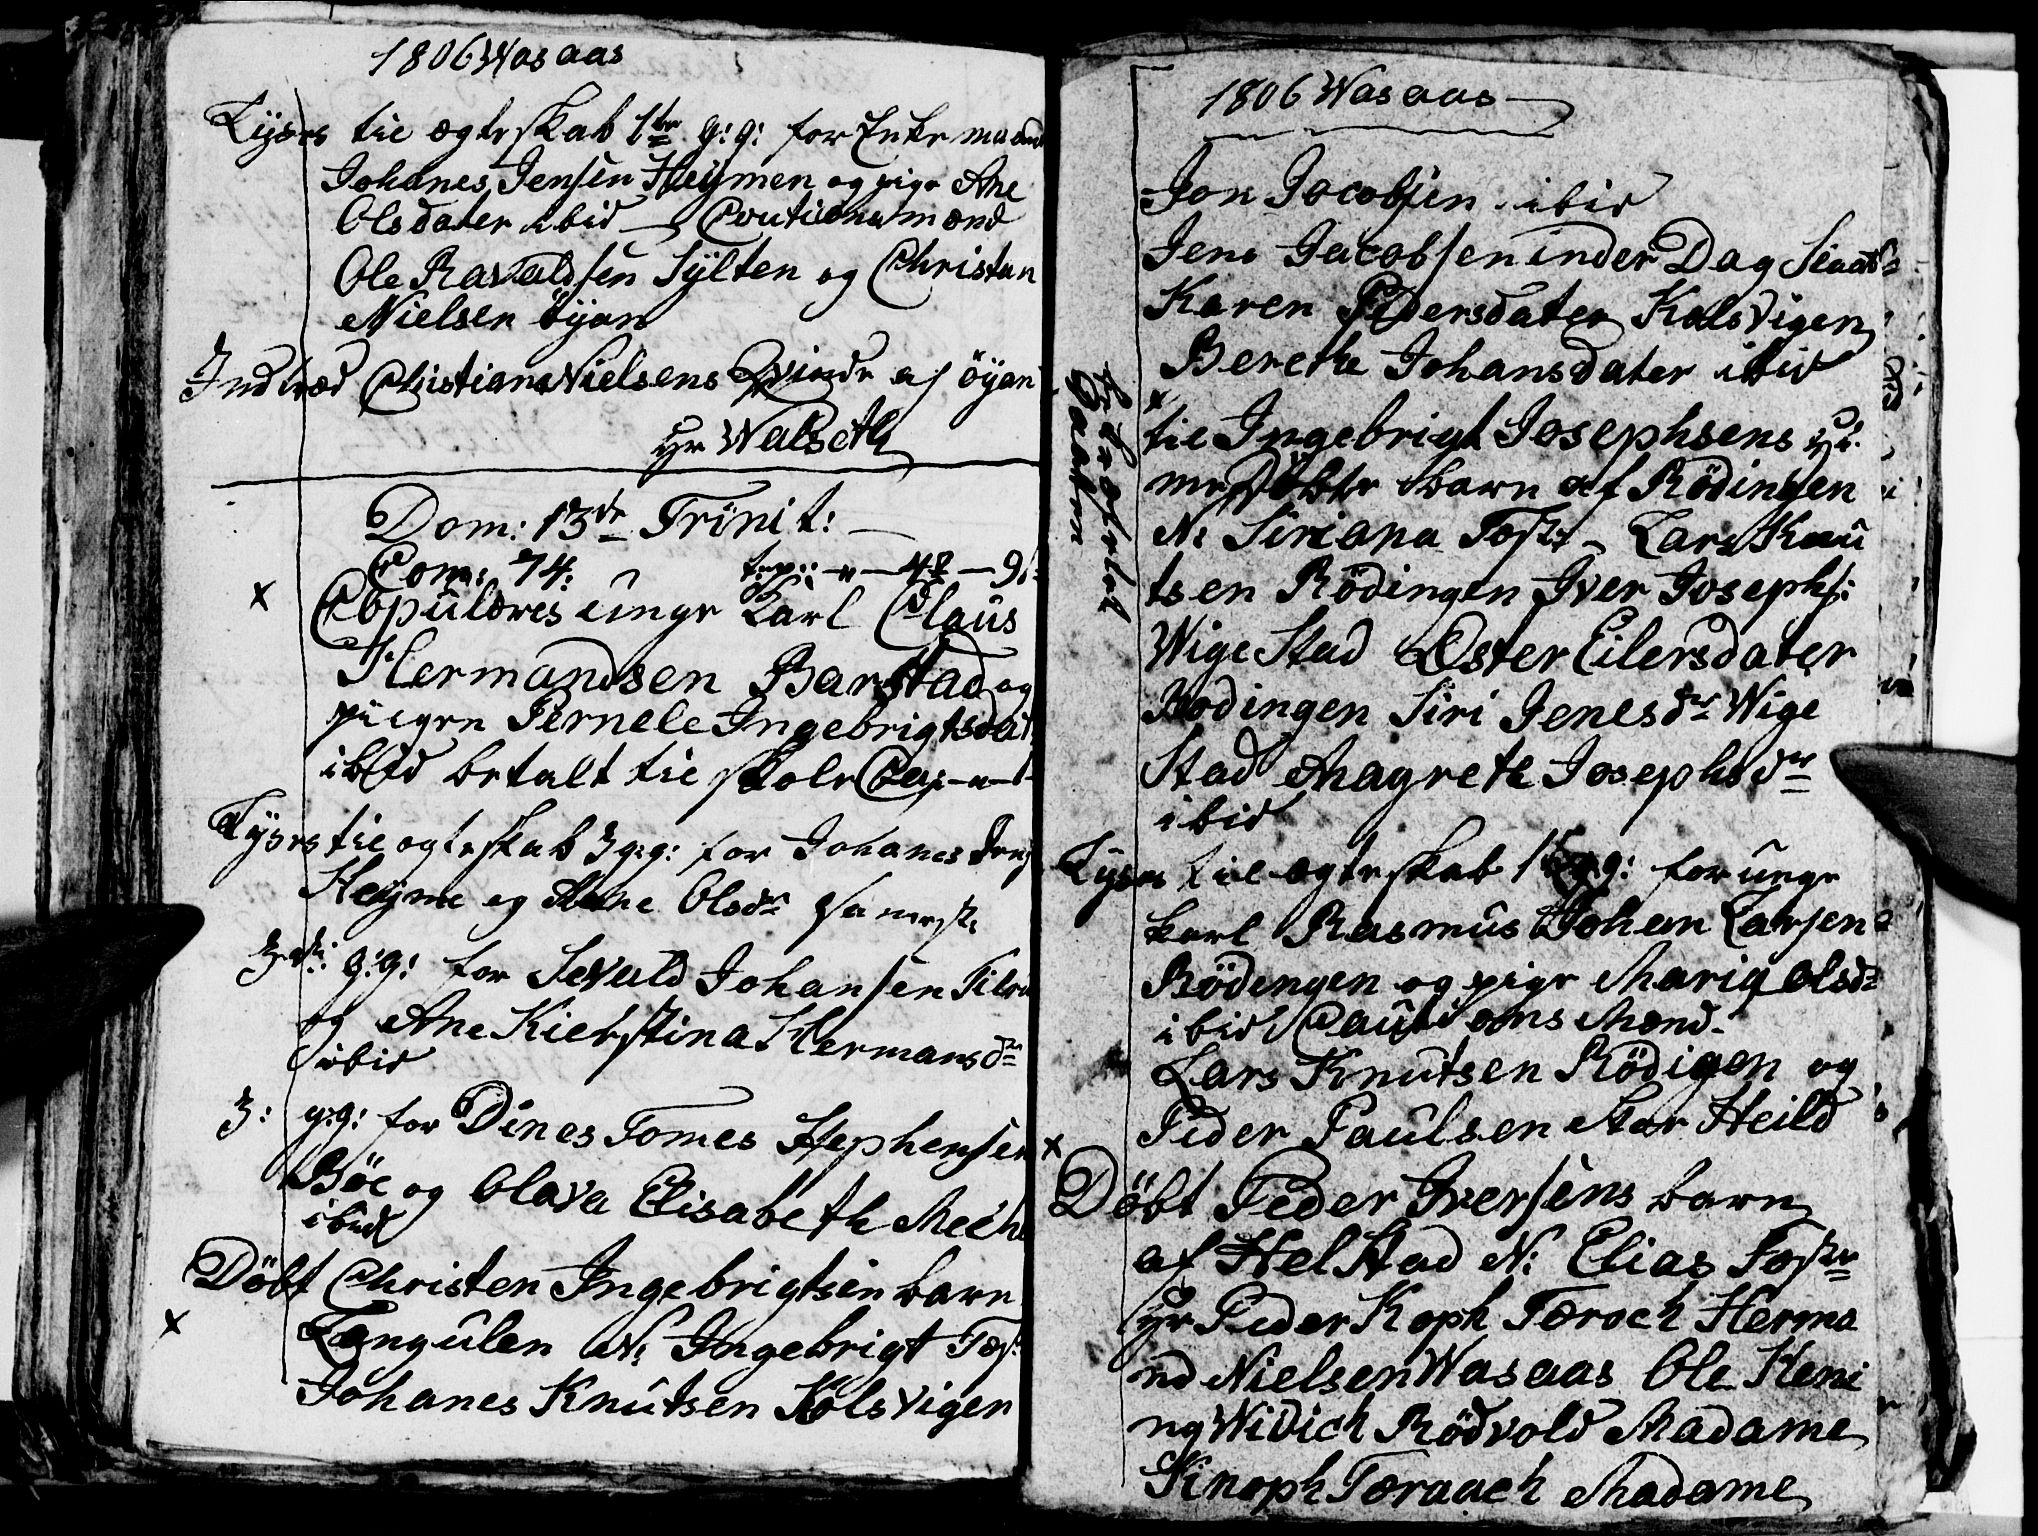 1806 Wasaas
Lyses til ægteskab 1te g: g: for Enkemand
Johanes Jensen Heymen og pige Ane
Olsdater ibid — Coutions mænd
Ole Ravaldsen Sylten og Christan
Nielsen öyan
Indtræd Christian Nielsens Qvinde af öyan
hr Walseth
Dom: 13de Trinit:
Com: 74:
Copuleres unge Karl Claus
Hermandsen Barstad og
piigen Pernele Ingebrigtsdat
ibid betalt til skole
Lyses til ægteskab 3 g: g: for Johanes Jens
Heyme og Ane Olsdr sammeste
3de g: g: for Sevald Johansen
og Ane Kierstina Hermansdr
ibid
3: g: g: for Dines Tomes Stephensen
Böe og Olava Elisabeth
ibid
Döbt Christen Ingebrigtsen barn
Langulen N: Ingebrigt Fos:
Johanes Knutsen Kolsvigen
1806 Wasaas
Jon Jacobsen ibid
Jens Jacobsen inder Dag
Karen Pedersdater Kolsvigen
Berethe Johansdater ibid
til Ingebrigt Josephsens
barn af Rödingen
N: Siriana Fos: — Lars Knu
tsen Rödingen Iver Josephs:
Wige Stad Ester Eilersdater
Rodingen Siri Jenesdr Wige
Stad Magrete Josephsdr
ibid
Lyses til ægteskab 1te g: g: for unge
karl Rasmus Johan Larsen
Rödengen og pige Maria Olsdr
ibid Cautions Mænd
Lars Knutsen Rödigen og
Peder Paulsen Stor Heild
Döbt Peder Iversens barn
af Hel Stad N: Elias Fos:
hr Peder Koph Toroch Herma
nd Nielsen Wasaas Ole Heni
ng Widich Rödvold Madame
Kinoph Toraach Madame